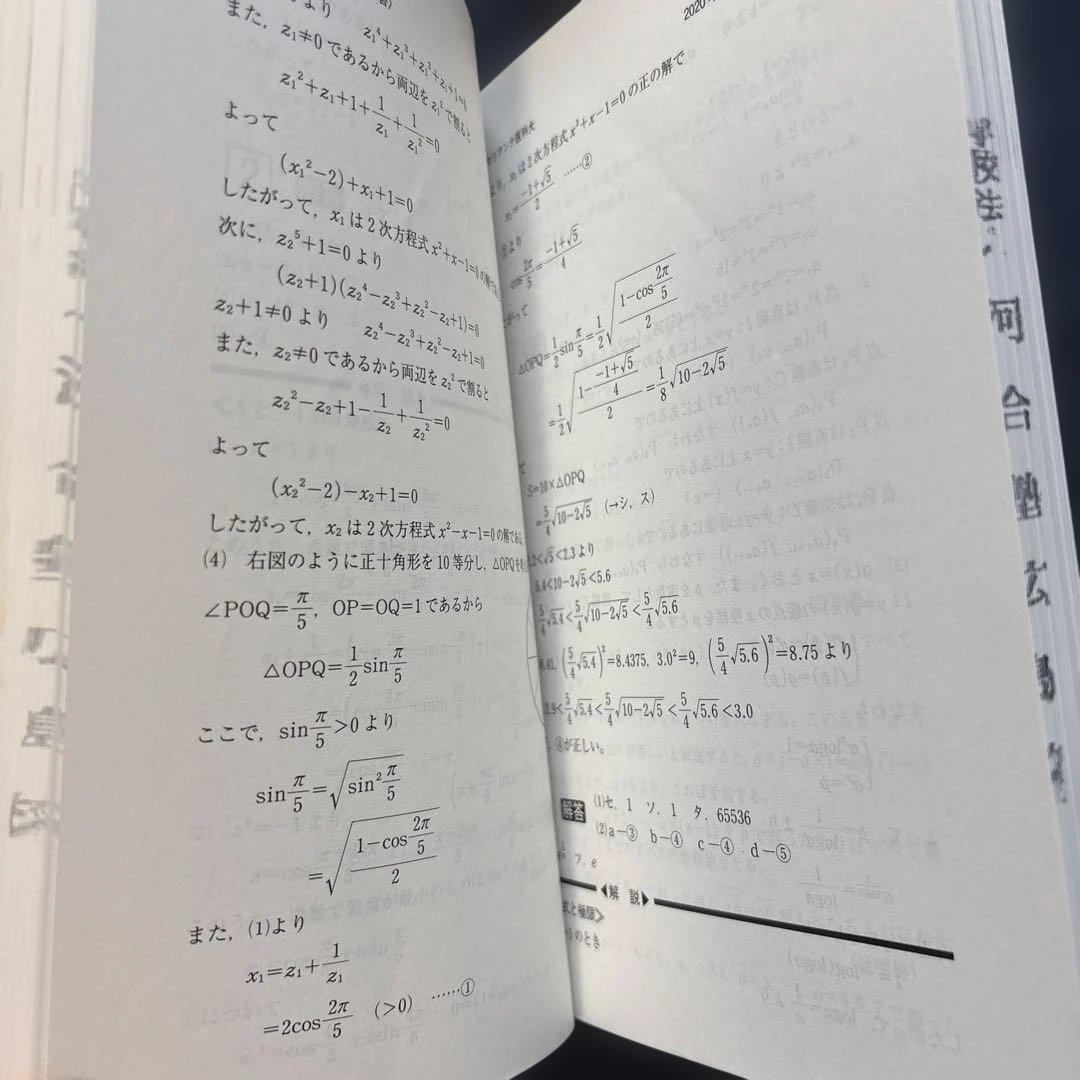 より z₁⁴+z₁³+z₁²+z₁+1=0
また，z₁≠0であるから両辺をz₁²で割ると
z₁²+z₁+1+1/z₁+1/z₁²=0
よって
(x₁²−2)+x₁+1=0
したがって，x₁は2次方程式x²+x−1=0の
次に，z₂⁵+1=0より
(z₂+1)(z₂⁴−z₂³+z₂²−z₂+1)=0
z₂+1≠0より z₂⁴−z₂³+z₂²−z₂+1=0
また，z₂≠0であるから両辺をz₂²で割ると
z₂²−z₂+1−1/z₂+1/z₂²=0
よって
(x₂²−2)−x₂+1=0
したがって，x₂は2次方程式x²−x−1=0の解である
(4) 右図のように正十角形を10等分し，△OPQを
∠POQ=π/5，OP=OQ=1であるから
△OPQ=1/2 sin π/5
ここで，sin π/5>0より
sin π/5=√(sin² π/5)
=√((1−cos 2π/5)/2)
また，(1)より
x₁=z₁+1/z₁
=2cos 2π/5 (>0) ……①
2020
アンナ医科大
より，x₁は2次方程式x²+x−1=0の正の解で
x₁=(−1+√5)/2 ……②
より
cos 2π/5=(−1+√5)/4
△OPQ=1/2 sin π/5=1/2 √((1−cos 2π/5)/2)
=1/2 √((1−(−1+√5)/4)/2)=1/8 √(10−2√5)
S=10×△OPQ
=5/4 √(10−2√5) (→シ，ス)
<√5<2.3より
5.4<10−2√5<5.6
5/4 √5.4<5/4 √(10−2√5)<5/4 √5.6
8.41，(5/4 √5.4)²=8.4375，3.0²=9，(5/4 √5.6)²=8.75より
2.9<5/4 √5.4<5/4 √(10−2√5)<5/4 √5.6<3.0
が正しい。
解答 (1)セ．1 ソ．1 タ．65536
(2)a−③ b−④ c−④ d−⑤
フ．e
◀解 説▶
式と極限≫
のとき
河合塾